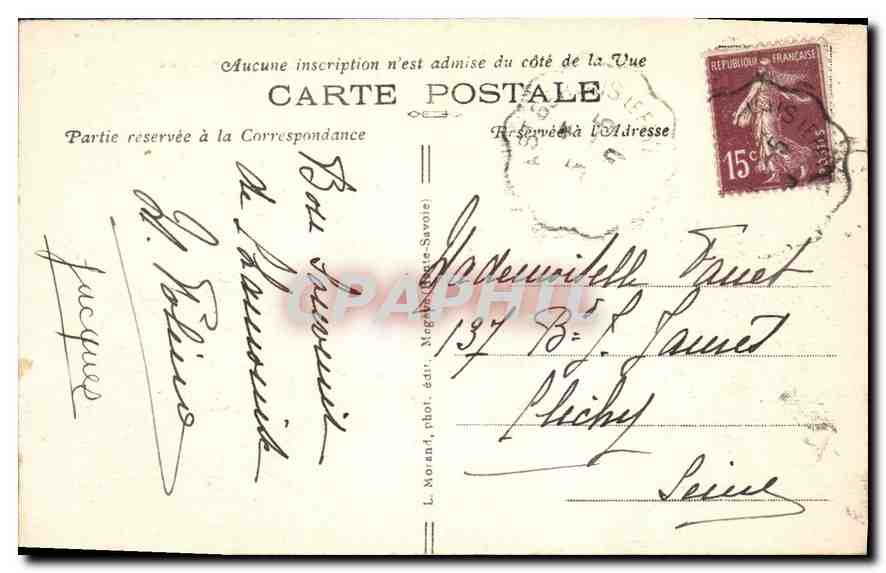 Aucune inscription n'est admise du côté de la Vue
CARTE POSTALE
Partie réservée à la Correspondance
Réservée à l'Adresse
REPUBLIQUE FRANÇAISE
15c
POSTES
Bon souvenir
de
Jacques
L. Morand, phot. édit., Megève (Haute-Savoie)
CPAPHIL
Mademoiselle Fauet
137 Bd J. Jaurès
Clichy
Seine